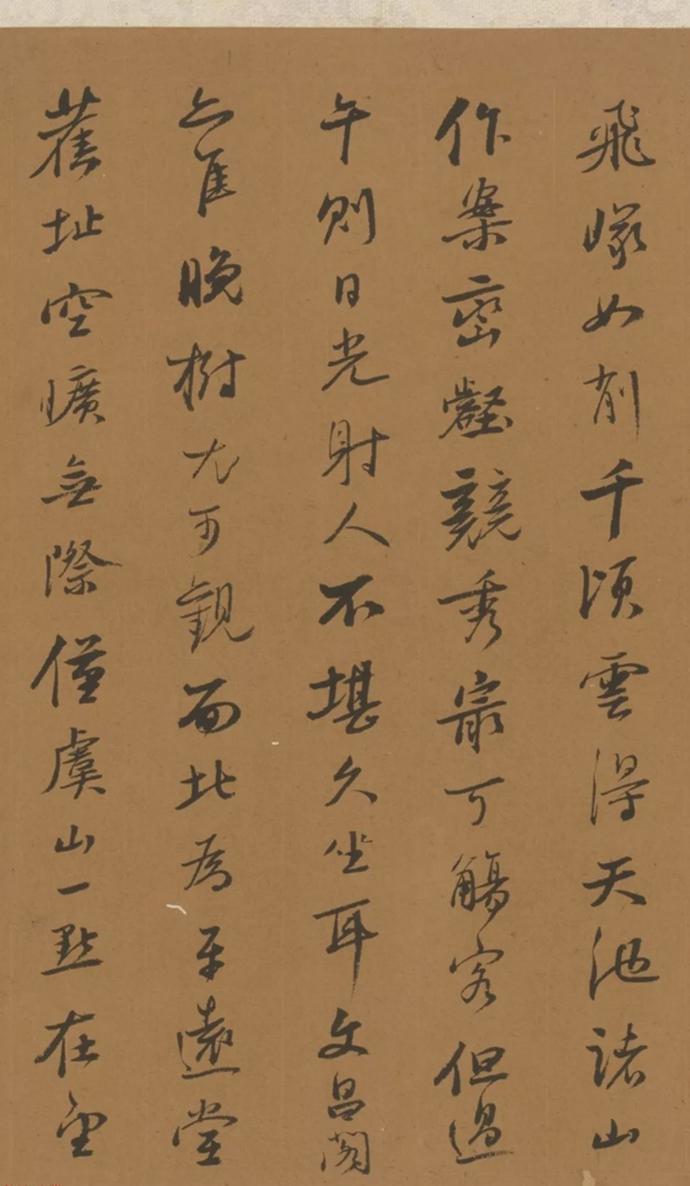 飛如削千頃雲得天池諸山
作案峦壑競秀最可觴客但過
午則日光射人不堪久坐耳文昌閣
亦佳晚樹尤可觀面北為平遠堂
舊址空曠無際僅虞山一點在望